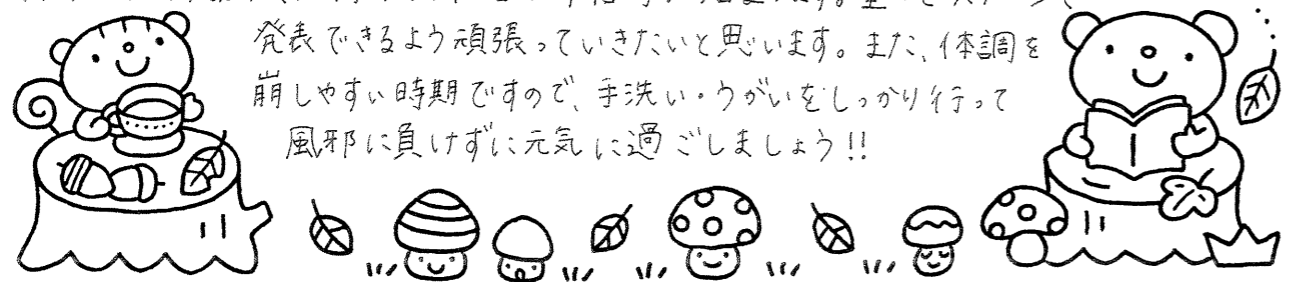 発表できるよう頑張っていきたいと思います。また、体調を
崩しやすい時期ですので、手洗い・うがいをしっかり行って
風邪に負けずに元気に過ごしましょう!!